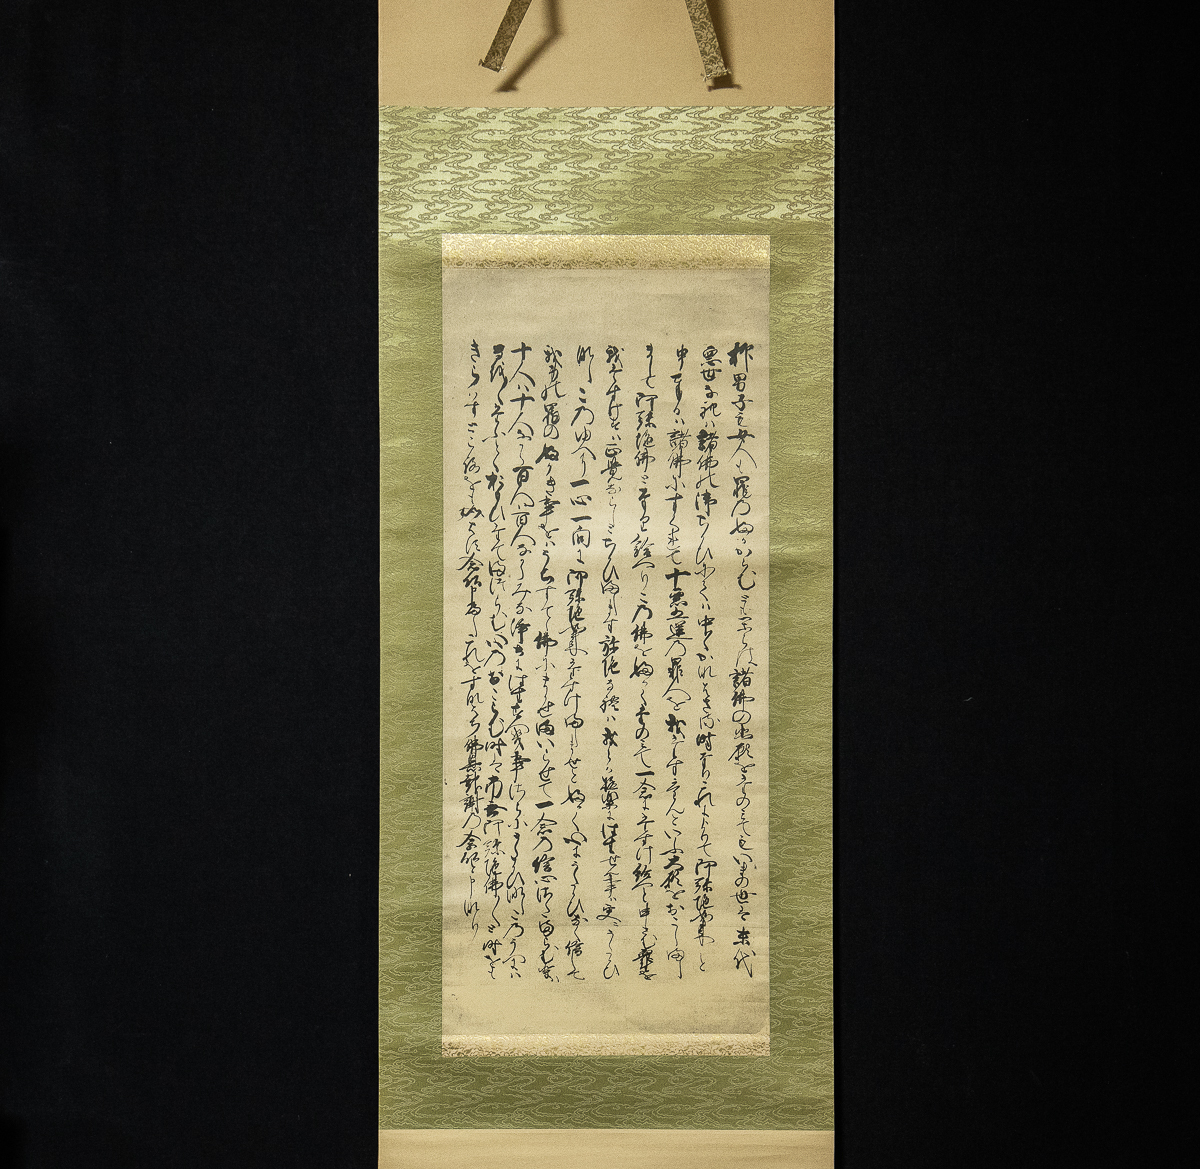 抑男子も女人も罪のふかからむともからは諸佛の悲願をたのみても いまの世は末代
悪世なれは諸佛の御ちかひにては中〱かなはさる時なり これによりて阿弥陀如来と
申奉るは諸佛にすくれて十悪五逆の罪人を我たすけんといふ大願をおこしまし
まして阿弥陀佛となり給へり この佛をふかくたのみて一念に たすけ給へと申さむ衆生を
我たすけすは正覚ならしとちかひまします弥陀なれは我らか極楽に往生せむ事は更にうたかひ
なし このゆへに一心一向に阿弥陀如来たすけたまへとふかく心にうたかひなく信して
我身の罪のふかき事をはうちすて佛にまかせまいらせて一念の信心さたまらむ輩は
十人は十人なから百人は百人なからみな浄土に往生すへき事さらにうたかひなし このうへには
なを〱たふとくおもひたてまつらむ心のおこらむ時は南無阿弥陀佛〱と時をも
きらはす ところをもきらはす念佛申へし これをすなはち佛恩報謝の念佛と申なり